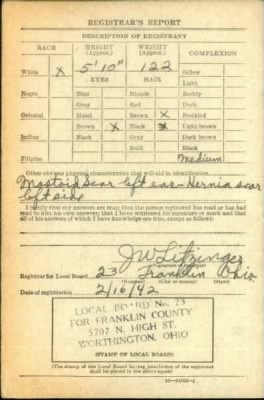 REGISTRAR'S REPORT
DESCRIPTION OF REGISTRANT
RACE HEIGHT (Approx.) WEIGHT (Approx.) COMPLEXION
White X 5'10" 122 Sallow
EYES HAIR Light
Negro Blue Blonde Ruddy
Gray Red Dark
Oriental Hazel Brown X Freckled
Brown X Black Light brown
Indian Black Gray Dark brown
Bald Black
Filipino Medium
Other obvious physical characteristics that will aid in identification
Mastoid Scar left ear - Hernia scar
left side
I certify that my answers are true; that the person registered has read or has had
read to him his own answers; that I have witnessed his signature or mark and that
all of his answers of which I have knowledge are true, except as follows:
J W Litzinger
Registrar for Local Board 23 Franklin Ohio
(Number) (City or county) (State)
Date of registration 2/16/42
LOCAL BOARD No. 23
FOR FRANKLIN COUNTY
5707 N. HIGH ST.
WORTHINGTON, OHIO
(STAMP OF LOCAL BOARD)
(The stamp of the Local Board having jurisdiction of the registrant
shall be placed in the above space)